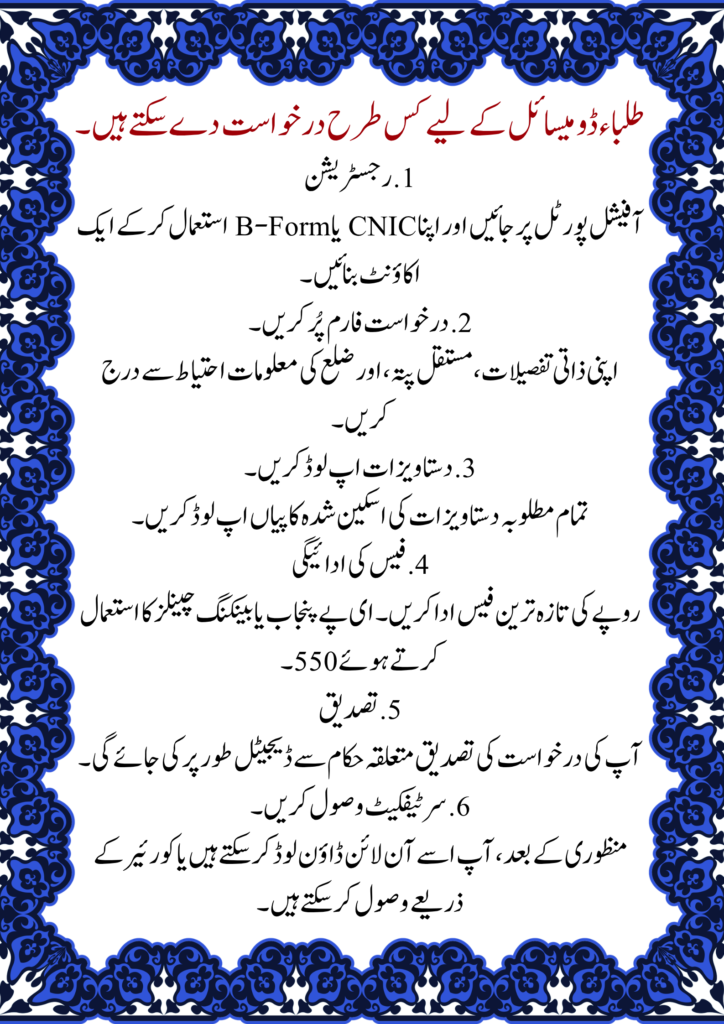 طلباء ڈومیسائل کے لیے کس طرح درخواست دے سکتے ہیں۔
1. رجسٹریشن
آفیشل پورٹل پر جائیں اور اپنا CNIC یا B-Form استعمال کر کے ایک
اکاؤنٹ بنائیں۔
2. درخواست فارم پُر کریں۔
اپنی ذاتی تفصیلات، مستقل پتہ، اور ضلع کی معلومات احتیاط سے درج
کریں۔
3. دستاویزات اپ لوڈ کریں۔
تمام مطلوبہ دستاویزات کی اسکین شدہ کاپیاں اپ لوڈ کریں۔
4. فیس کی ادائیگی
روپے کی تازہ ترین فیس ادا کریں۔ ای پے پنجاب یا بینکنگ چینلز کا استعمال
کرتے ہوئے 550۔
5. تصدیق
آپ کی درخواست کی تصدیق متعلقہ حکام سے ڈیجیٹل طور پر کی جائے گی۔
6. سرٹیفکیٹ وصول کریں۔
منظوری کے بعد، آپ اسے آن لائن ڈاؤن لوڈ کر سکتے ہیں یا کورئیر کے
ذریعے وصول کر سکتے ہیں۔